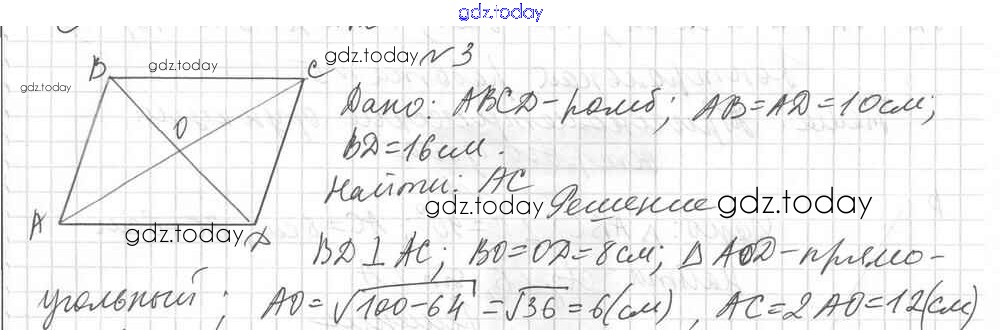 gdz.today
gdz.today №3
gdz.today
gdz.today
B C O A D
Дано: ABCD-ромб; AB=AD=10см;
BD=16см.
Найти: AC
gdz.today Решение gdz.today
gdz.today
BD⊥AC; BO=OD=8см; △AOD-прямо-
угольный; AO=√100-64=√36=6(см), AC=2AO=12(см)